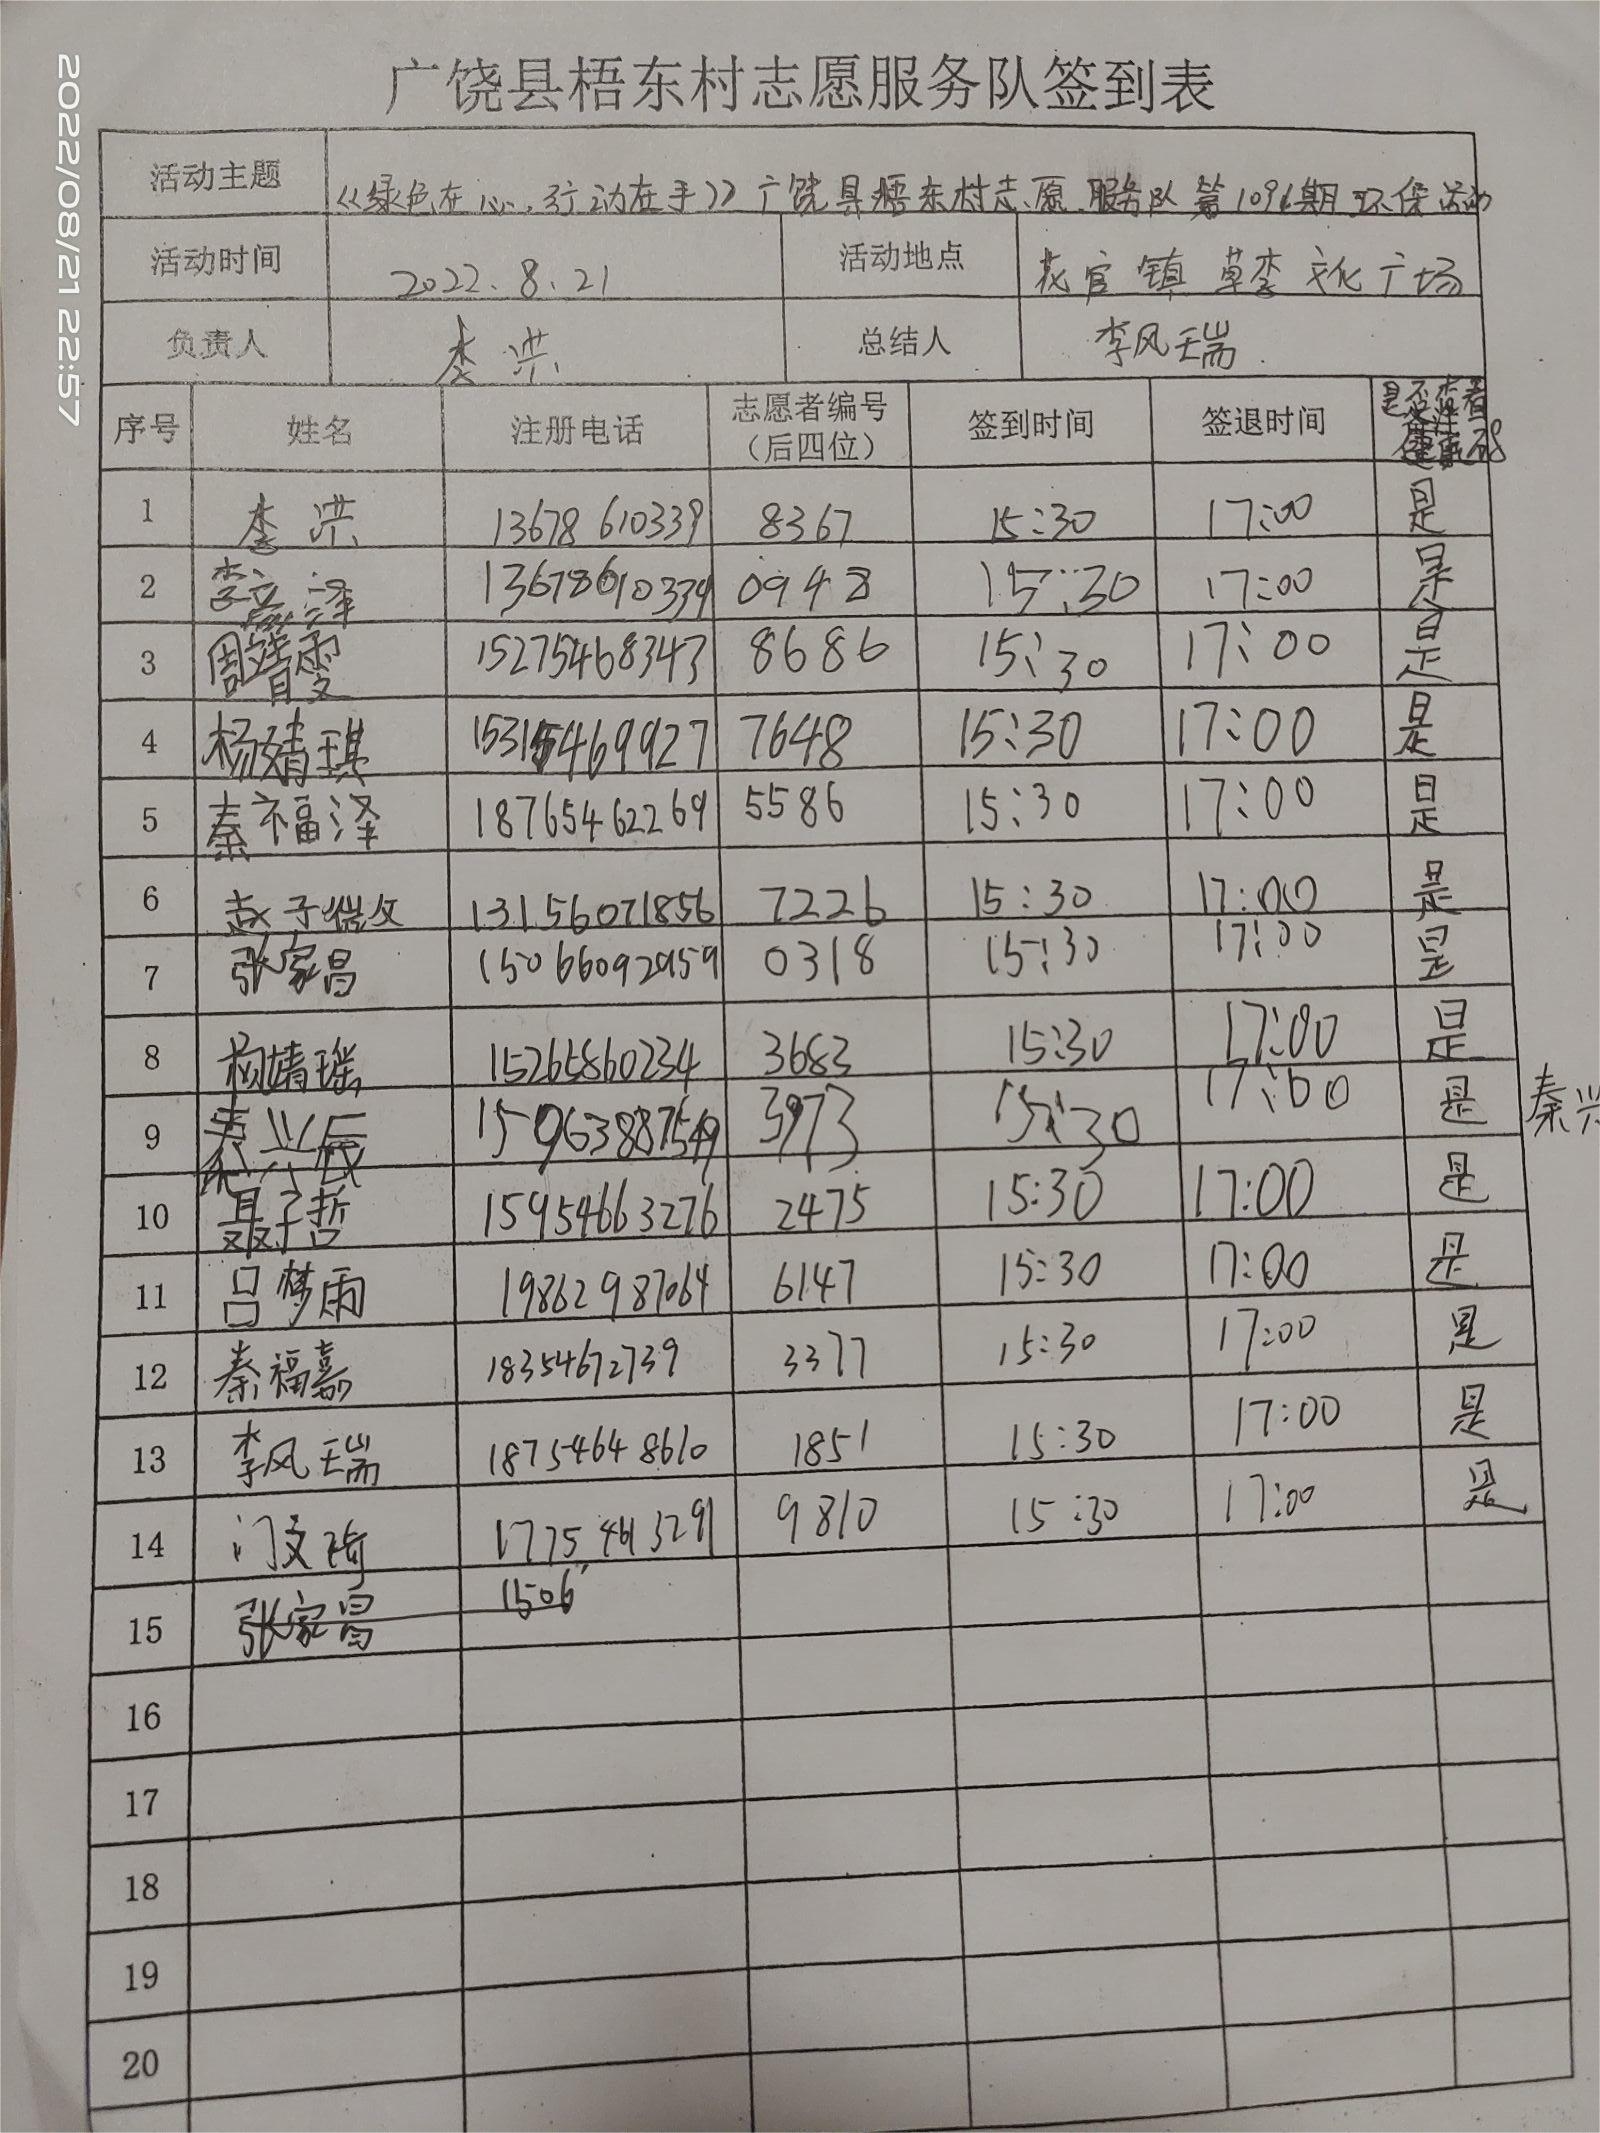 2022/08/21 22:57
广饶县梧东村志愿服务队签到表
活动主题 《绿色在心,行动在手》广饶县梧东村志愿服务队第1096期环保活动
活动时间 2022.8.21 活动地点 花官镇草李文化广场
负责人 李洪 总结人 李风瑞
序号 姓名 注册电话 志愿者编号（后四位） 签到时间 签退时间 是否查看健康码
1 李洪 13678610339 8367 15:30 17:00 是
2 李 泽 13678610339 0948 15:30 17:00 是
3 周靖雯 15275468343 8686 15:30 17:00 是
4 杨婧琪 15315469927 7648 15:30 17:00 是
5 秦福泽 18765462269 5586 15:30 17:00 是
6 赵子 13156071856 7226 15:30 17:00 是
7 张家昌 15066092959 0318 15:30 17:00 是
8 杨婧瑶 15265860234 3683 15:30 17:00 是
9 秦兴辰 15963887549 3973 15:30 17:00 是 秦兴
10 聂子哲 15954663276 2475 15:30 17:00 是
11 吕梦雨 19862987064 6147 15:30 17:00 是
12 秦福嘉 18354672739 3377 15:30 17:00 是
13 李风瑞 18754648610 1851 15:30 17:00 是
14 门文琦 17754613291 9810 15:30 17:00 是
15 张家昌 1506
16
17
18
19
20